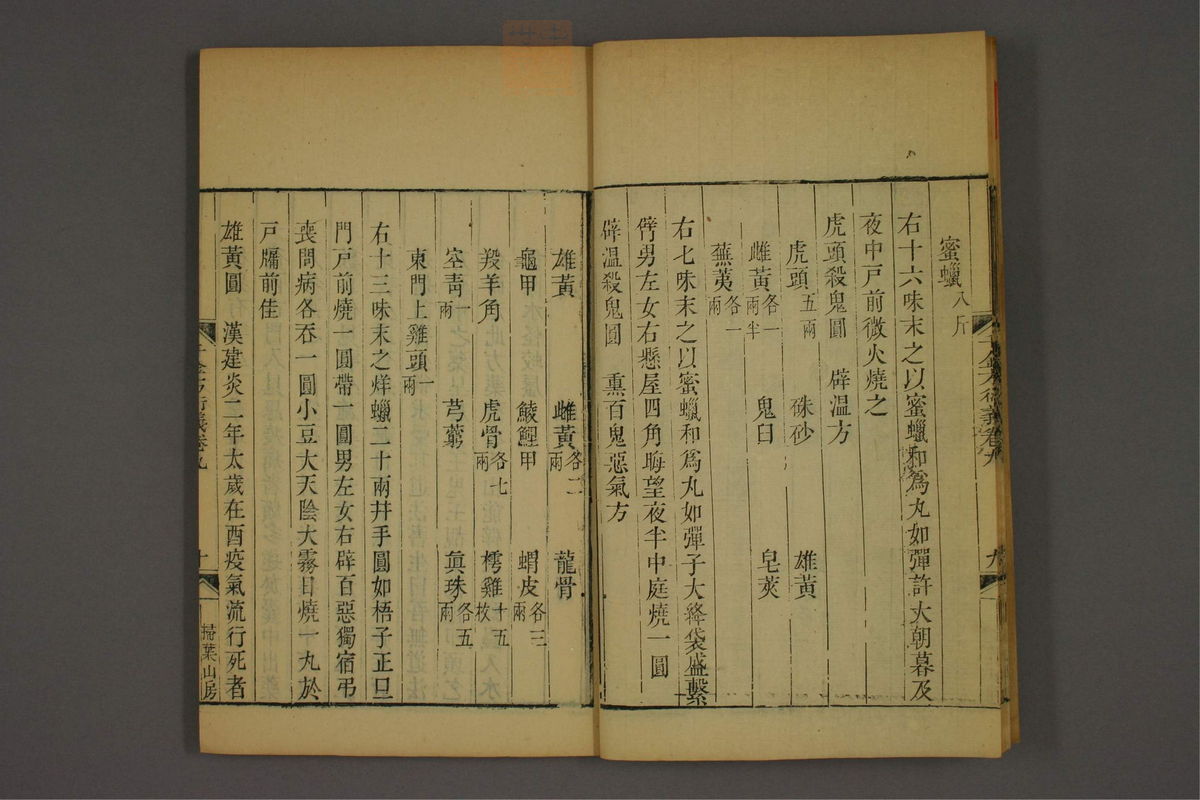 蜜蠟八斤
右十六味末之以蜜蠟和爲丸如彈許大朝暮及
夜中戸前微火燒之
虎頭殺鬼圓　辟温方
虎頭五兩　硃砂　雄黃
雌黃各一兩半　鬼臼　皂莢
蕪荑各一兩
右七味末之以蜜蠟和爲丸如彈子大絳袋盛繫
臂男左女右懸屋四角晦望夜半中庭燒一圓
辟温殺鬼圓　熏百鬼惡氣方
千金方衍義卷九
九
雄黃　雌黃各二兩　龍骨
龜甲　鯪鯉甲　蝟皮各三兩
羖羊角　虎骨各七兩　樗雞十五枚
空靑一兩　芎藭　眞珠各五兩
東門上雞頭一兩
右十三味末之烊蠟二十兩井手圓如梧子正旦
門戸前燒一圓帶一圓男左女右辟百惡獨宿弔
喪問病各吞一圓小豆大天陰大霧日燒一丸於
戸牖前佳
雄黃圓　漢建炎二年太歲在酉疫氣流行死者
千金方衍義卷九
十
掃葉山房